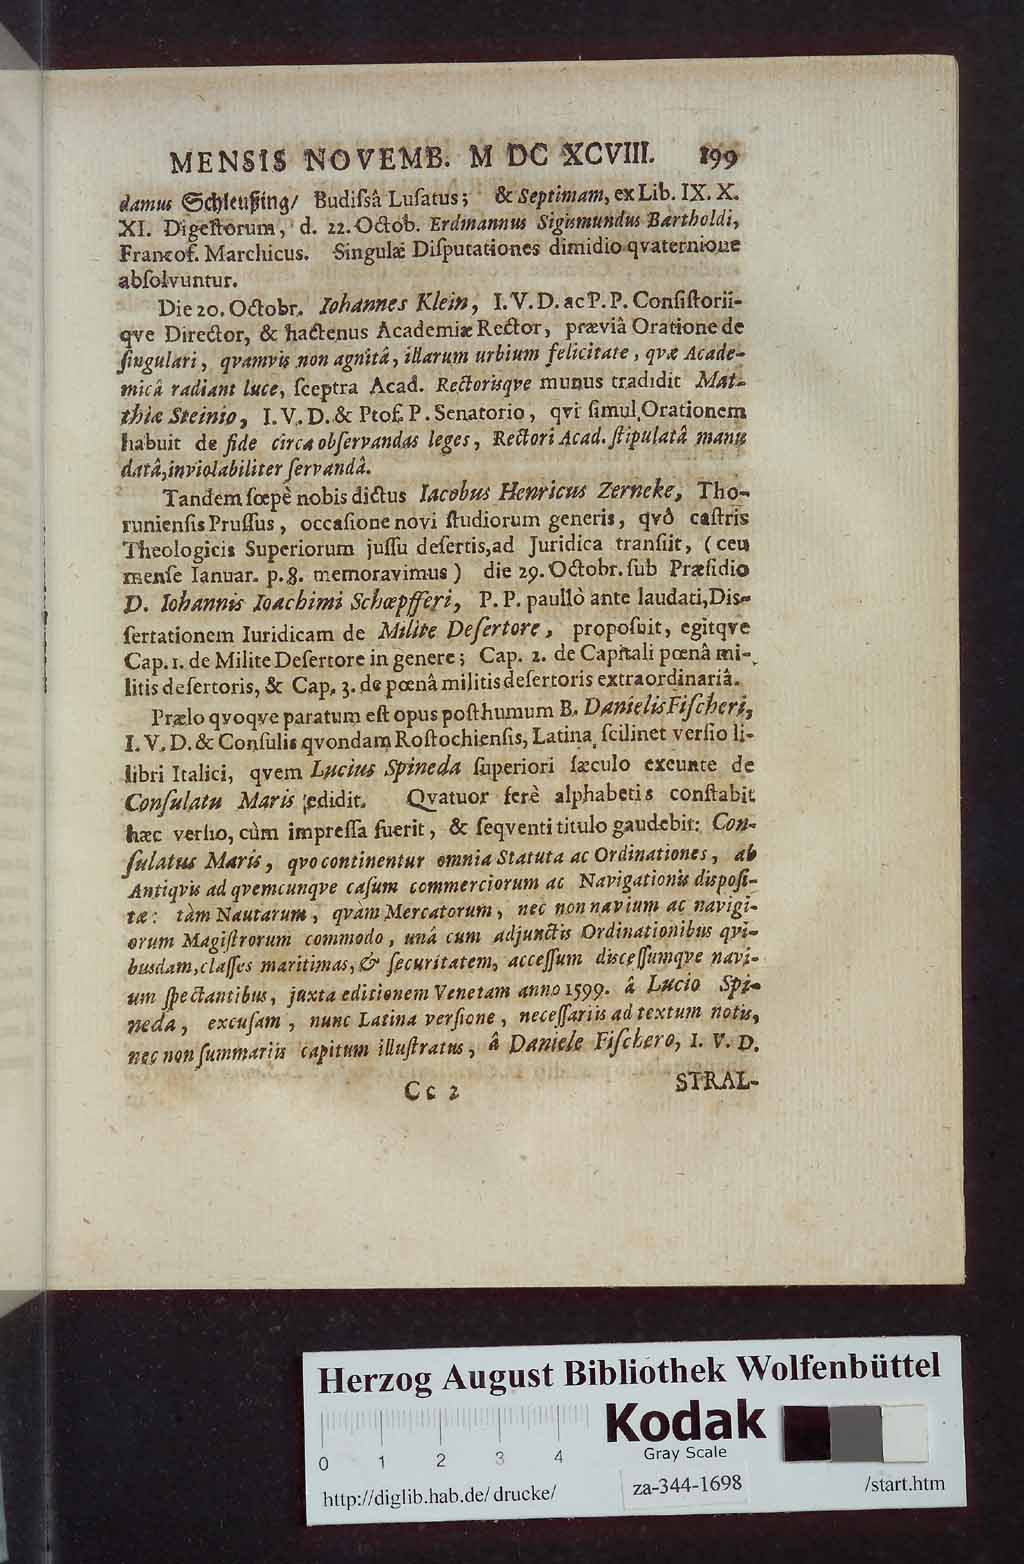 MENSIS NOVEMB. M DC XCVIII. 199
damus Schleußing/ Budiſsâ Luſatus; & Septimam, ex Lib. IX. X.
XI. Digeſtorum, d. 22. Octob. Erdmannus Sigismundus Bartholdi,
Francof. Marchicus. Singulæ Diſputationes dimidio qvaternione
abſolvuntur.
Die 20. Octobr. Iohannes Klein, I. V. D. ac P. P. Conſiſtorii-
qve Director, & hactenus Academiæ Rector, præviâ Oratione de
ſingulari, qvamvis non agnitâ, illarum urbium felicitate, qvæ Acade-
micâ radiant luce, ſceptra Acad. Rectorisqve munus tradidit Mat-
thiæ Steinio, I. V. D. & Ptof. P. Senatorio, qvi ſimul Orationem
habuit de fide circa obſervandas leges, Rectori Acad. ſtipulatâ manu
datâ, inviolabiliter ſervandâ.
Tandem ſœpè nobis dictus Iacobus Henricus Zerneke, Tho-
runienſis Pruſſus, occaſione novi ſtudiorum generis, qvô caſtris
Theologicis Superiorum juſſu deſertis, ad Juridica tranſiit, (ceu
menſe Ianuar. p. 8. memoravimus) die 29. Octobr. ſub Præſidio
D. Iohannis Ioachimi Schœpfferi, P. P. paullò ante laudati, Dis-
ſertationem Iuridicam de Milite Deſertore, propoſuit, egitqve
Cap. 1. de Milite Deſertore in genere; Cap. 2. de Capitali pœnâ mi-
litis deſertoris, & Cap. 3. de pœnâ militis deſertoris extraordinariâ.
Prælo qvoqve paratum eſt opus poſthumum B. Danielis Fiſcheri,
I. V. D. & Conſulis qvondam Roſtochienſis, Latina ſcilinet verſio li-
libri Italici, qvem Lucius Spineda ſuperiori ſæculo exeunte de
Conſulatu Maris edidit. Qvatuor ferè alphabetis conſtabit
hæc verſio, cùm impreſſa fuerit, & ſeqventi titulo gaudebit: Con-
ſulatus Maris, qvo continentur omnia Statuta ac Ordinationes, ab
Antiqvis ad qvemcunqve caſum commerciorum ac Navigationis dispoſi-
tæ: tàm Nautarum, qvàm Mercatorum, nec non navium ac navigi-
orum Magiſtrorum commodo, unâ cum adjunctis Ordinationibus qvi-
busdam, claſſes maritimas, & ſecuritatem, acceſſum disceſſumqve navi-
um ſpectantibus, juxta editionem Venetam anno 1599. â Lucio Spi-
neda, excuſam, nunc Latina verſione, neceſſariis ad textum notis,
nec non ſummariis capitum illuſtratus, â Daniele Fiſchero, I. V. D.
Cc 2 STRAL-
Herzog August Bibliothek Wolfenbüttel
Kodak
Gray Scale
0 1 2 3 4
http://diglib.hab.de/drucke/ za-344-1698 /start.htm